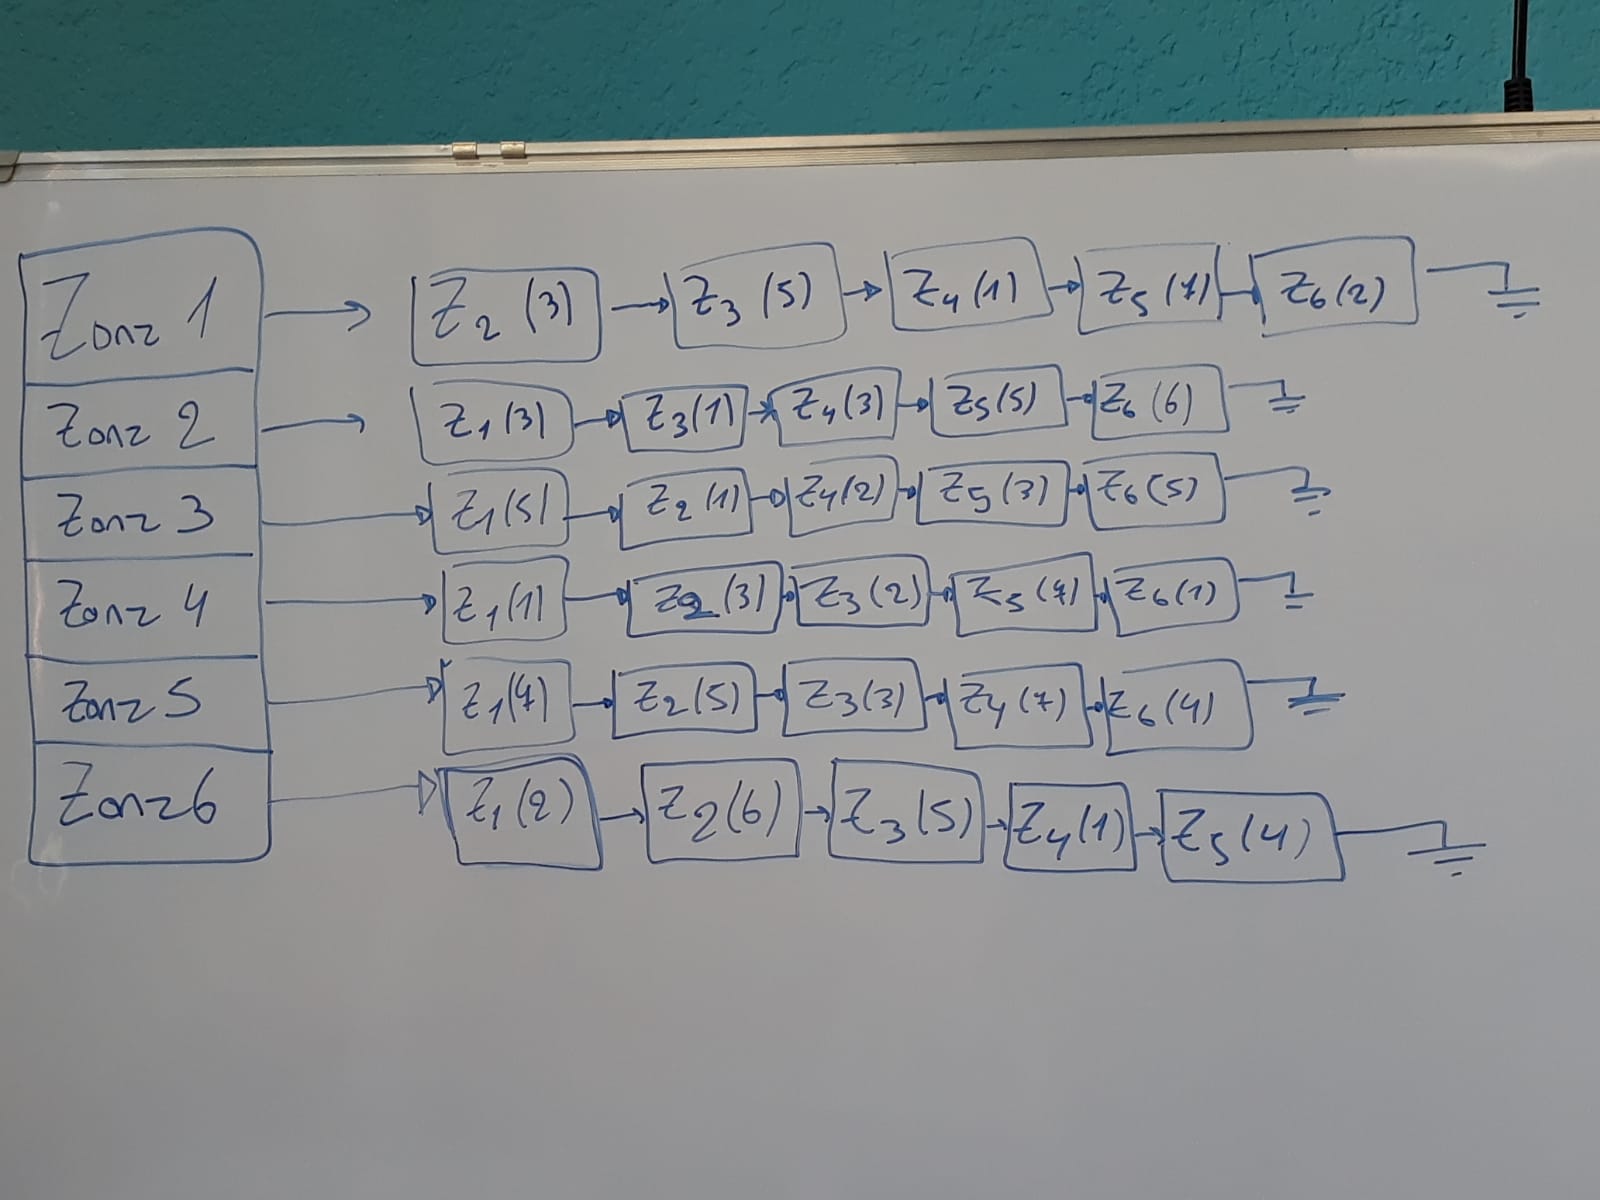 Zona 1 Z2 (3) Z3 (5) Z4 (1) Z5 (7) Z6 (2)
Zona 2 Z1 (3) Z3 (1) Z4 (3) Z5 (5) Z6 (6)
Zona 3 Z1 (5) Z2 (1) Z4 (2) Z5 (3) Z6 (5)
Zona 4 Z1 (1) Z2 (3) Z3 (2) Z5 (7) Z6 (1)
Zona 5 Z1 (7) Z2 (5) Z3 (3) Z4 (7) Z6 (4)
Zona 6 Z1 (2) Z2 (6) Z3 (5) Z4 (1) Z5 (4)